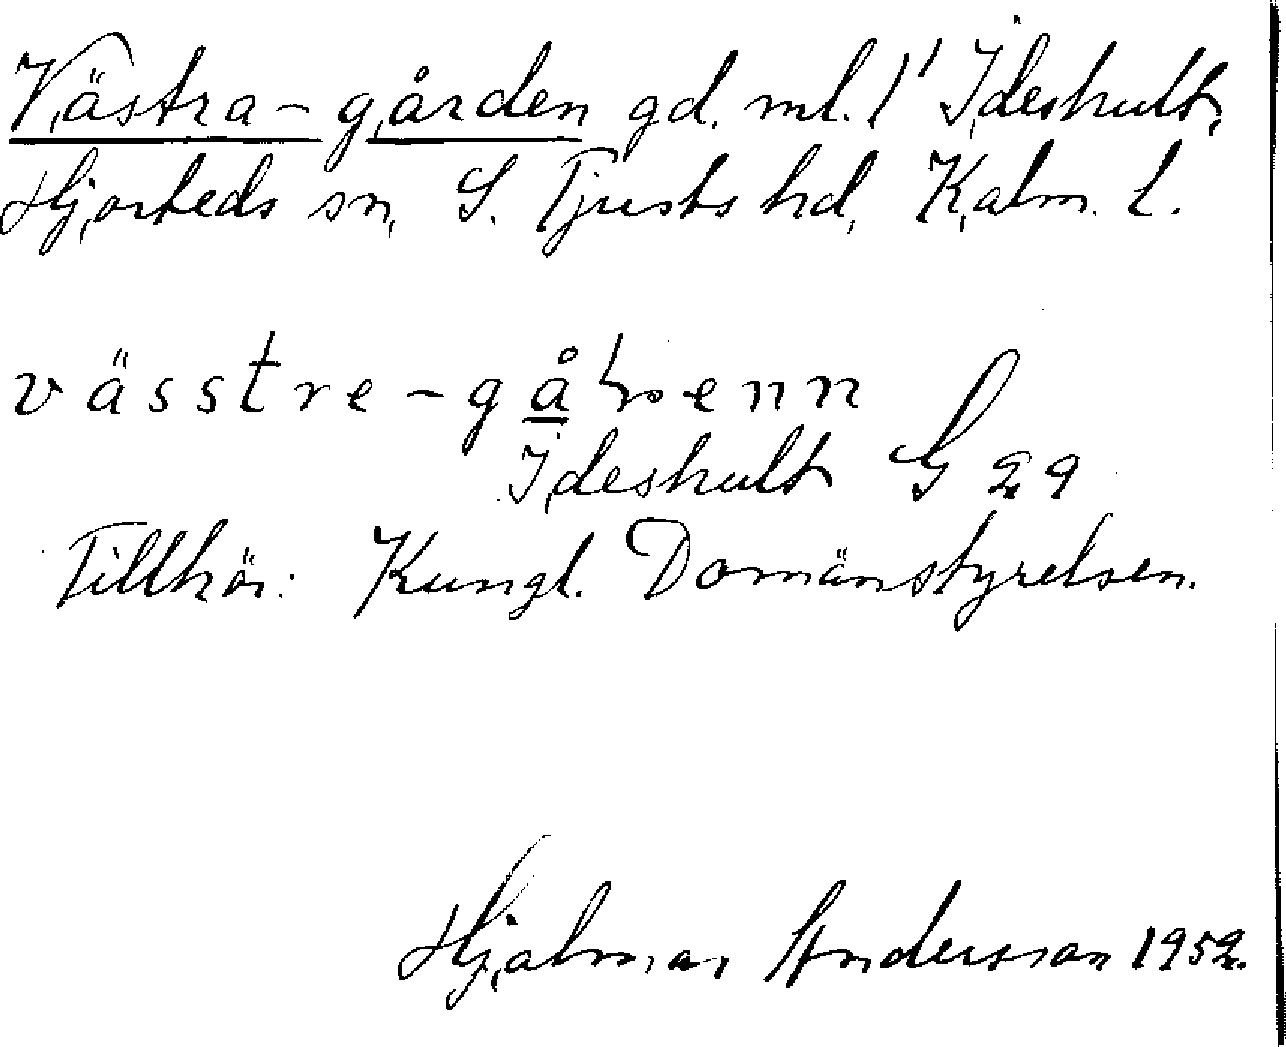 Västra-gården gd. ml. 1' Ideshult,
Hjorteds sn, S. Tjusts hd, Kalm. L.
vässtre-gårenn
Ideshult G 29
Tillhör: Kungl. Domänstyrelsen.
Hjalmar Andersson 1952.